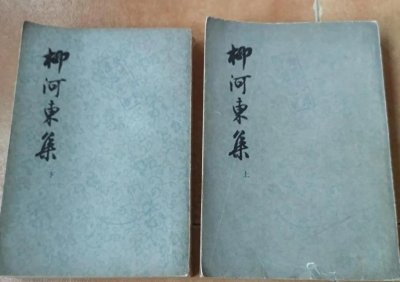 柳河東集
下
柳河東集
上